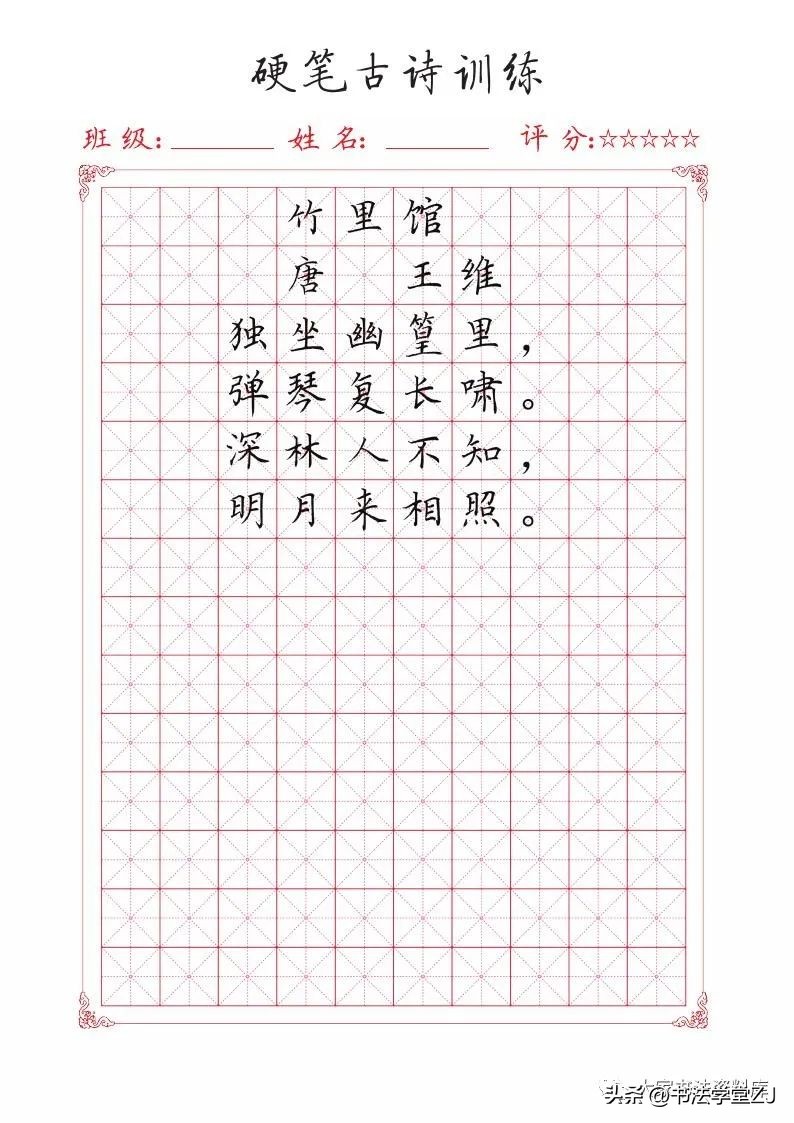 硬笔古诗训练
班级： 姓名： 评分：☆☆☆☆☆
竹里馆
唐 王维
独坐幽篁里，
弹琴复长啸。
深林人不知，
明月来相照。
大家书法资料库
头条@书法学堂ZJ